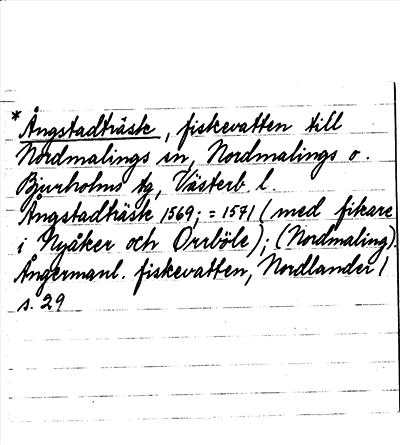 * Ångstadträsk, fiskevatten till
Nordmalings sn, Nordmalings o.
Bjurholms tg, Västerb. l.
Ångstadträsk 1569; = 1571 (med fikare
i Nyåker och Orrböle); (Nordmaling).
Ångermanl. fiskevatten, Nordlander 1
s. 29